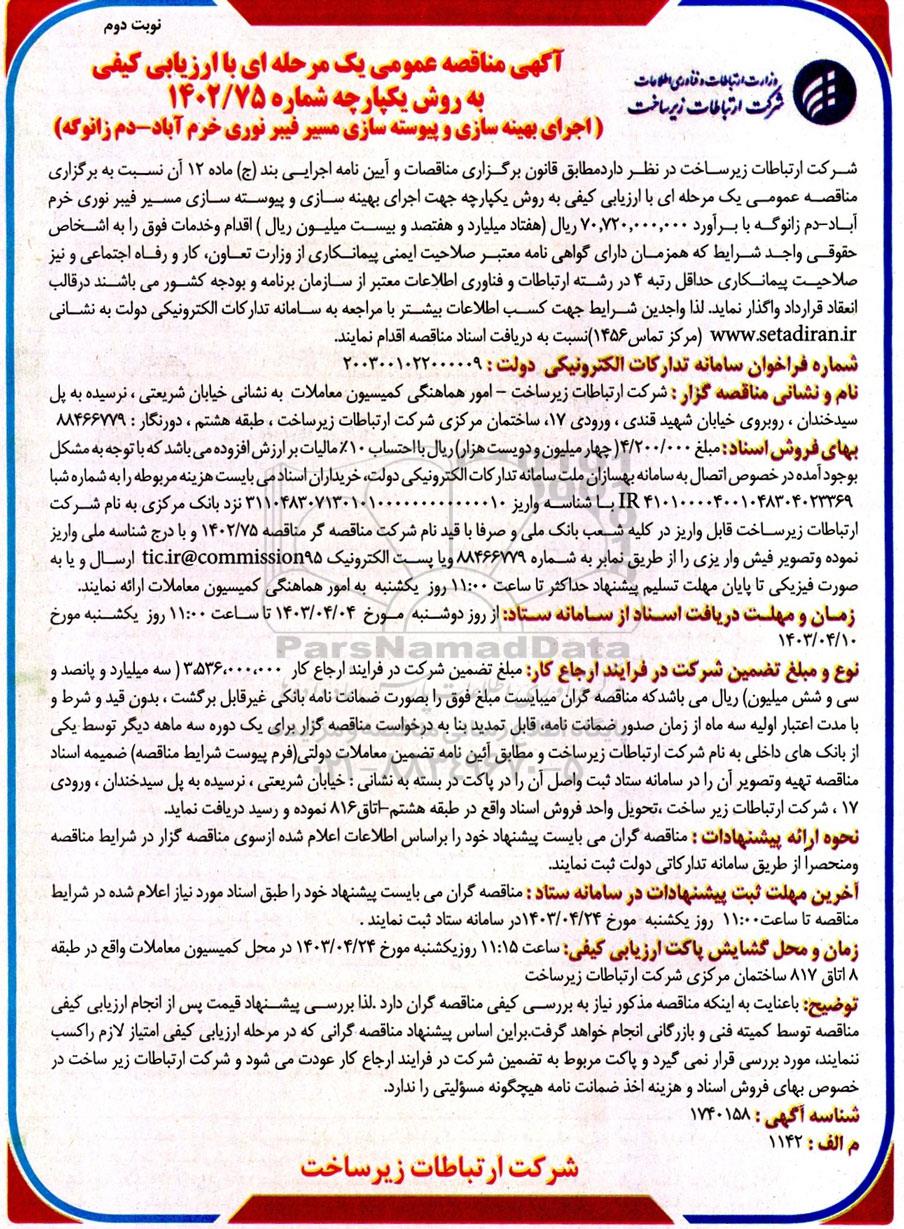 نوبت دوم
وزارت ارتباطات و فناوری اطلاعات
شرکت ارتباطات زیرساخت
آگهی مناقصه عمومی یک مرحله ای با ارزیابی کیفی
به روش یکپارچه شماره ۱۴۰۲/۷۵
( اجرای بهینه سازی و پیوسته سازی مسیر فیبر نوری خرم آباد-دم زانوگه)
شرکت ارتباطات زیرساخت در نظر داردمطابق قانون برگزاری مناقصات و آیین نامه اجرایی بند (ج) ماده ۱۲ آن نسبت به برگزاری
مناقصه عمومی یک مرحله ای با ارزیابی کیفی به روش یکپارچه جهت اجرای بهینه سازی و پیوسته سازی مسیر فیبر نوری خرم
آباد-دم زانوگه با برآورد ۷۰,۷۲۰,۰۰۰,۰۰۰ ریال (هفتاد میلیارد و هفتصد و بیست میلیون ریال ) اقدام وخدمات فوق را به اشخاص
حقوقی واجد شرایط که همزمان دارای گواهی نامه معتبر صلاحیت ایمنی پیمانکاری از وزارت تعاون، کار و رفاه اجتماعی و نیز
صلاحیت پیمانکاری حداقل رتبه ۴ در رشته ارتباطات و فناوری اطلاعات معتبر از سازمان برنامه و بودجه کشور می باشند درقالب
انعقاد قرارداد واگذار نماید. لذا واجدین شرایط جهت کسب اطلاعات بیشتر با مراجعه به سامانه تدارکات الکترونیکی دولت به نشانی
www.setadiran.ir (مرکز تماس۱۴۵۶)نسبت به دریافت اسناد مناقصه اقدام نمایند.
شماره فراخوان سامانه تدارکات الکترونیکی دولت : ۲۰۰۳۰۰۱۰۲۲۰۰۰۰۰۹
نام و نشانی مناقصه گزار : شرکت ارتباطات زیرساخت - امور هماهنگی کمیسیون معاملات به نشانی خیابان شریعتی ، نرسیده به پل
سیدخندان ، روبروی خیابان شهید قندی ، ورودی ۱۷، ساختمان مرکزی شرکت ارتباطات زیرساخت ، طبقه هشتم ، دورنگار : ۸۸۴۶۶۷۷۹
بهای فروش اسناد: مبلغ ۴/۲۰۰/۰۰۰( چهار میلیون و دویست هزار) ریال با احتساب ۱۰٪ مالیات بر ارزش افزوده می باشد که با توجه به مشکل
بوجود آمده در خصوص اتصال به سامانه بهسازان ملت سامانه تدارکات الکترونیکی دولت، خریداران اسناد می بایست هزینه مربوطه را به شماره شبا
IR ۴۱۰۱۰۰۰۰۴۰۰۱۰۴۸۳۰۴۰۲۳۳۶۹ با شناسه واریز ۳۱۱۰۴۸۳۰۷۱۳۰۱۰۱۰۰۰۰۰۰۰۰۰۰۰۰۱۰ نزد بانک مرکزی به نام شرکت
ارتباطات زیرساخت قابل واریز در کلیه شعب بانک ملی و صرفا با قید نام شرکت مناقصه گر مناقصه ۱۴۰۲/۷۵ و با درج شناسه ملی واریز
نموده وتصویر فیش واریزی را از طریق نمابر به شماره ۸۸۴۶۶۷۷۹ ویا پست الکترونیک tic.ir@commission۹۵ ارسال و یا به
صورت فیزیکی تا پایان مهلت تسلیم پیشنهاد حداکثر تا ساعت ۱۱:۰۰ روز یکشنبه به امور هماهنگی کمیسیون معاملات ارائه نمایند.
زمان و مهلت دریافت اسناد از سامانه ستاد: از روز دوشنبه مورخ ۱۴۰۳/۰۴/۰۴ تا ساعت ۱۱:۰۰ روز یکشنبه مورخ
۱۴۰۳/۰۴/۱۰
نوع و مبلغ تضمین شرکت در فرایند ارجاع کار: مبلغ تضمین شرکت در فرایند ارجاع کار ۳،۵۳۶،۰۰۰،۰۰۰ ( سه میلیارد و پانصد و
سی و شش میلیون) ریال می باشدکه مناقصه گران میبایست مبلغ فوق را بصورت ضمانت نامه بانکی غیرقابل برگشت ، بدون قید و شرط و
با مدت اعتبار اولیه سه ماه از زمان صدور ضمانت نامه، قابل تمدید بنا به درخواست مناقصه گزار برای یک دوره سه ماهه دیگر توسط یکی
از بانک های داخلی به نام شرکت ارتباطات زیرساخت و مطابق آئین نامه تضمین معاملات دولتی(فرم پیوست شرایط مناقصه) ضمیمه اسناد
مناقصه تهیه وتصویر آن را در سامانه ستاد ثبت واصل آن را در پاکت در بسته به نشانی : خیابان شریعتی ، نرسیده به پل سیدخندان ، ورودی
۱۷ ، شرکت ارتباطات زیر ساخت ،تحویل واحد فروش اسناد واقع در طبقه هشتم-اتاق۸۱۶ نموده و رسید دریافت نماید.
نحوه ارائه پیشنهادات : مناقصه گران می بایست پیشنهاد خود را براساس اطلاعات اعلام شده ازسوی مناقصه گزار در شرایط مناقصه
ومنحصراً از طریق سامانه تدارکاتی دولت ثبت نمایند.
آخرین مهلت ثبت پیشنهادات در سامانه ستاد : مناقصه گران می بایست پیشنهاد خود را طبق اسناد مورد نیاز اعلام شده در شرایط
مناقصه تا ساعت۱۱:۰۰ روز یکشنبه مورخ ۱۴۰۳/۰۴/۲۴در سامانه ستاد ثبت نمایند .
زمان و محل گشایش پاکت ارزیابی کیفی: ساعت ۱۱:۱۵ روزیکشنبه مورخ ۱۴۰۳/۰۴/۲۴ در محل کمیسیون معاملات واقع در طبقه
۸ اتاق ۸۱۷ ساختمان مرکزی شرکت ارتباطات زیرساخت
توضیح: باعنایت به اینکه مناقصه مذکور نیاز به بررسی کیفی مناقصه گران دارد .لذا بررسی پیشنهاد قیمت پس از انجام ارزیابی کیفی
مناقصه توسط کمیته فنی و بازرگانی انجام خواهد گرفت.براین اساس پیشنهاد مناقصه گرانی که در مرحله ارزیابی کیفی امتیاز لازم راکسب
ننمایند، مورد بررسی قرار نمی گیرد و پاکت مربوط به تضمین شرکت در فرایند ارجاع کار عودت می شود و شرکت ارتباطات زیر ساخت در
خصوص بهای فروش اسناد و هزینه اخذ ضمانت نامه هیچگونه مسؤلیتی را ندارد.
شناسه آگهی : ۱۷۴۰۱۵۸
م الف : ۱۱۴۲
شرکت ارتباطات زیرساخت
ParsNamadData
۰۲۱-۸۸۳۴۹۶۷۰-۵